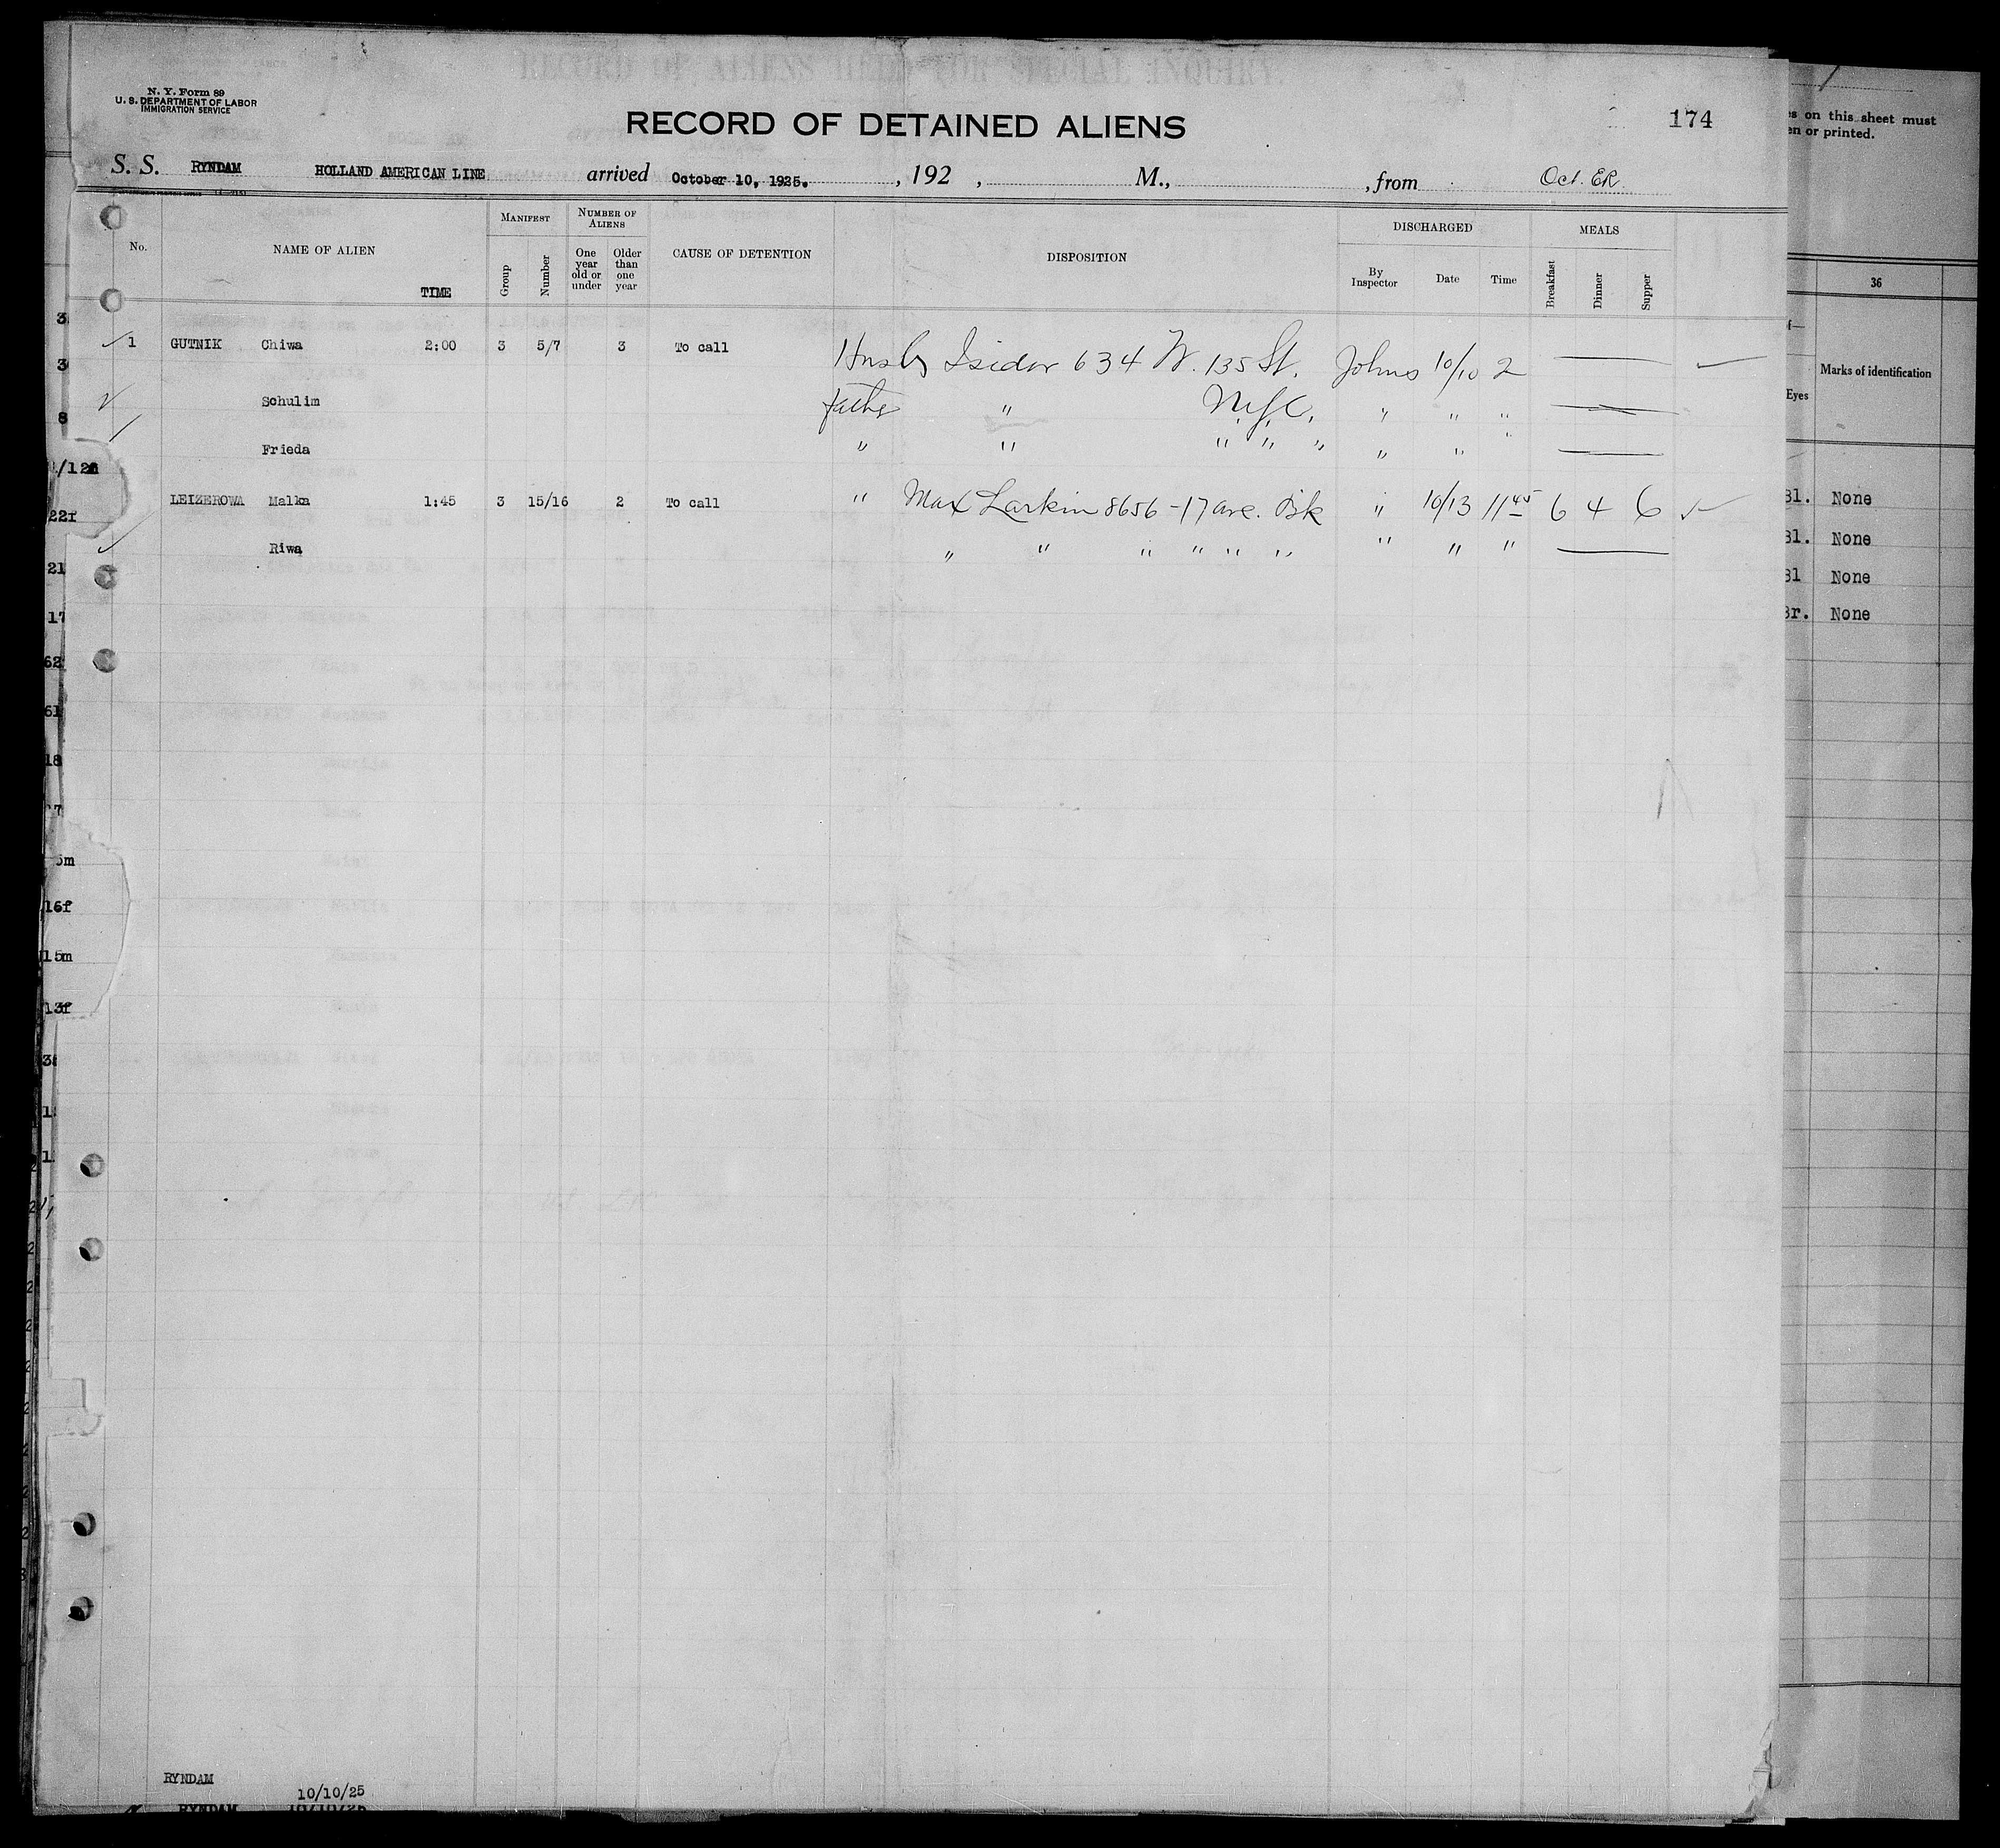 RECORD OF ALIENS HELD FOR SPECIAL INQUIRY.
N. Y. Form 89
U. S. DEPARTMENT OF LABOR
IMMIGRATION SERVICE
RECORD OF DETAINED ALIENS
174
S. S. RYNDAM HOLLAND AMERICAN LINE arrived October 10, 1925. , 192 , M., , from Oct. ER.
No. NAME OF ALIEN TIME MANIFEST Group Number NUMBER OF ALIENS One year old or under Older than one year CAUSE OF DETENTION DISPOSITION DISCHARGED By Inspector Date Time MEALS Breakfast Dinner Supper
1 GUTNIK Chiwa 2:00 3 5/7 3 To call Husb Isidor 634 W. 135 St. Johns 10/10 2
Schulim father " N.Y.C. " " "
Frieda " " " " " " "
LEIZEROWA Malka 1:45 3 15/16 2 To call " Max Larkin 8656 - 17 ave. Bk " 10/13 11 45 6 4 6
Riwa " " " " " " " " "
RYNDAM 10/10/25
RYNDAM 10/10/25
s on this sheet must
en or printed.
36
Eyes Marks of identification
Bl. None
Bl. None
Bl None
Br. None
3
3
8
22f
21
17
62
61
18
5m
16f
15m
13f